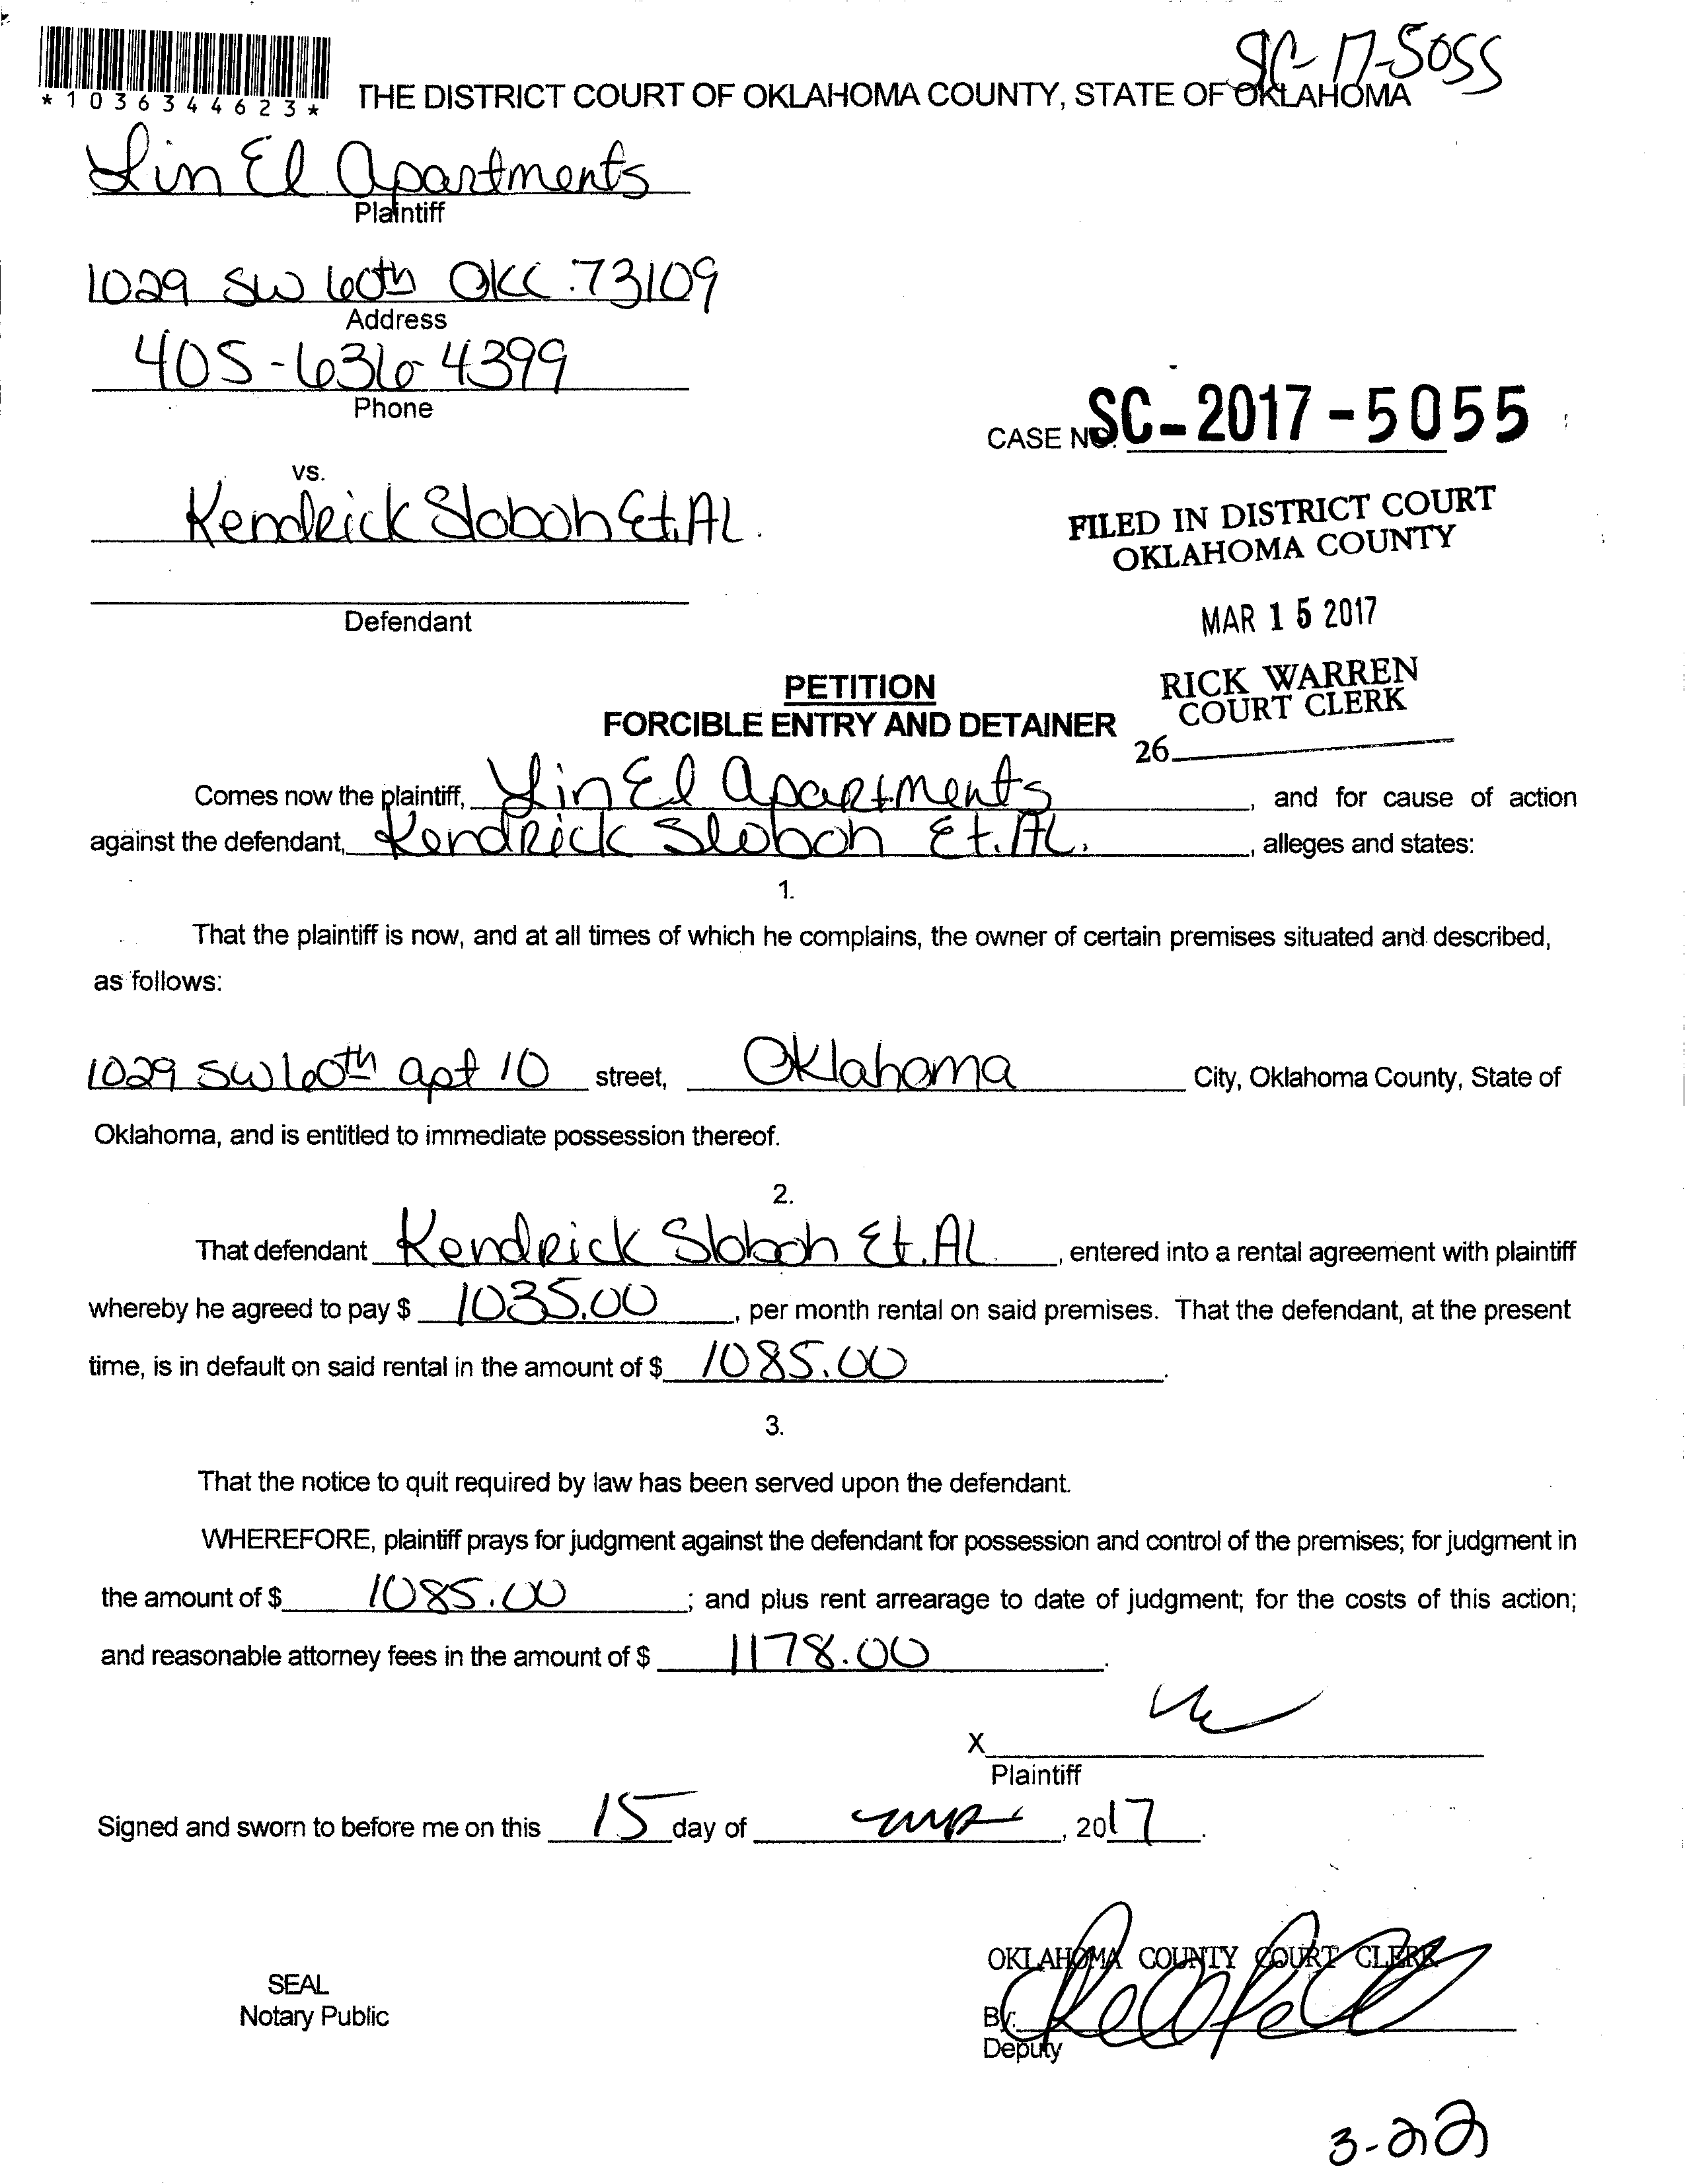 SC-17-5055
*1036344623*
THE DISTRICT COURT OF OKLAHOMA COUNTY, STATE OF OKLAHOMA
Lin El Apartments
Plaintiff
1029 SW 60th OKC. 73109
Address
405-636-4399
Phone
CASE NO. SC-2017-5055
vs.
Kendrick Sloboh Et.Al.
FILED IN DISTRICT COURT
OKLAHOMA COUNTY
Defendant
MAR 15 2017
PETITION
RICK WARREN
COURT CLERK
FORCIBLE ENTRY AND DETAINER
26
Comes now the plaintiff, Lin El Apartments, and for cause of action
against the defendant, Kendrick Sloboh Et.Al., alleges and states:
1.
That the plaintiff is now, and at all times of which he complains, the owner of certain premises situated and described,
as follows:
1029 SW 60th apt 10 street, Oklahoma City, Oklahoma County, State of
Oklahoma, and is entitled to immediate possession thereof.
2.
That defendant Kendrick Sloboh Et.Al., entered into a rental agreement with plaintiff
whereby he agreed to pay $ 1035.00, per month rental on said premises. That the defendant, at the present
time, is in default on said rental in the amount of $ 1085.00.
3.
That the notice to quit required by law has been served upon the defendant.
WHEREFORE, plaintiff prays for judgment against the defendant for possession and control of the premises; for judgment in
the amount of $ 1085.00; and plus rent arrearage to date of judgment; for the costs of this action;
and reasonable attorney fees in the amount of $ 1178.00.
X
Plaintiff
Signed and sworn to before me on this 15 day of , 2017.
OKLAHOMA COUNTY COURT CLERK
SEAL
Notary Public
By:
Deputy
3-22